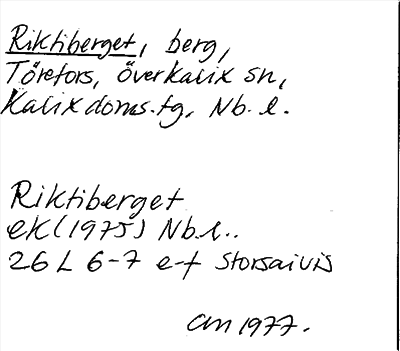 Riktiberget, berg,
Törefors, Överkalix sn,
Kalix doms.tg, Nb. l.
Riktiberget
ek (1975) Nb.l..
26 L 6-7 e-f Storsaivis
am 1977.